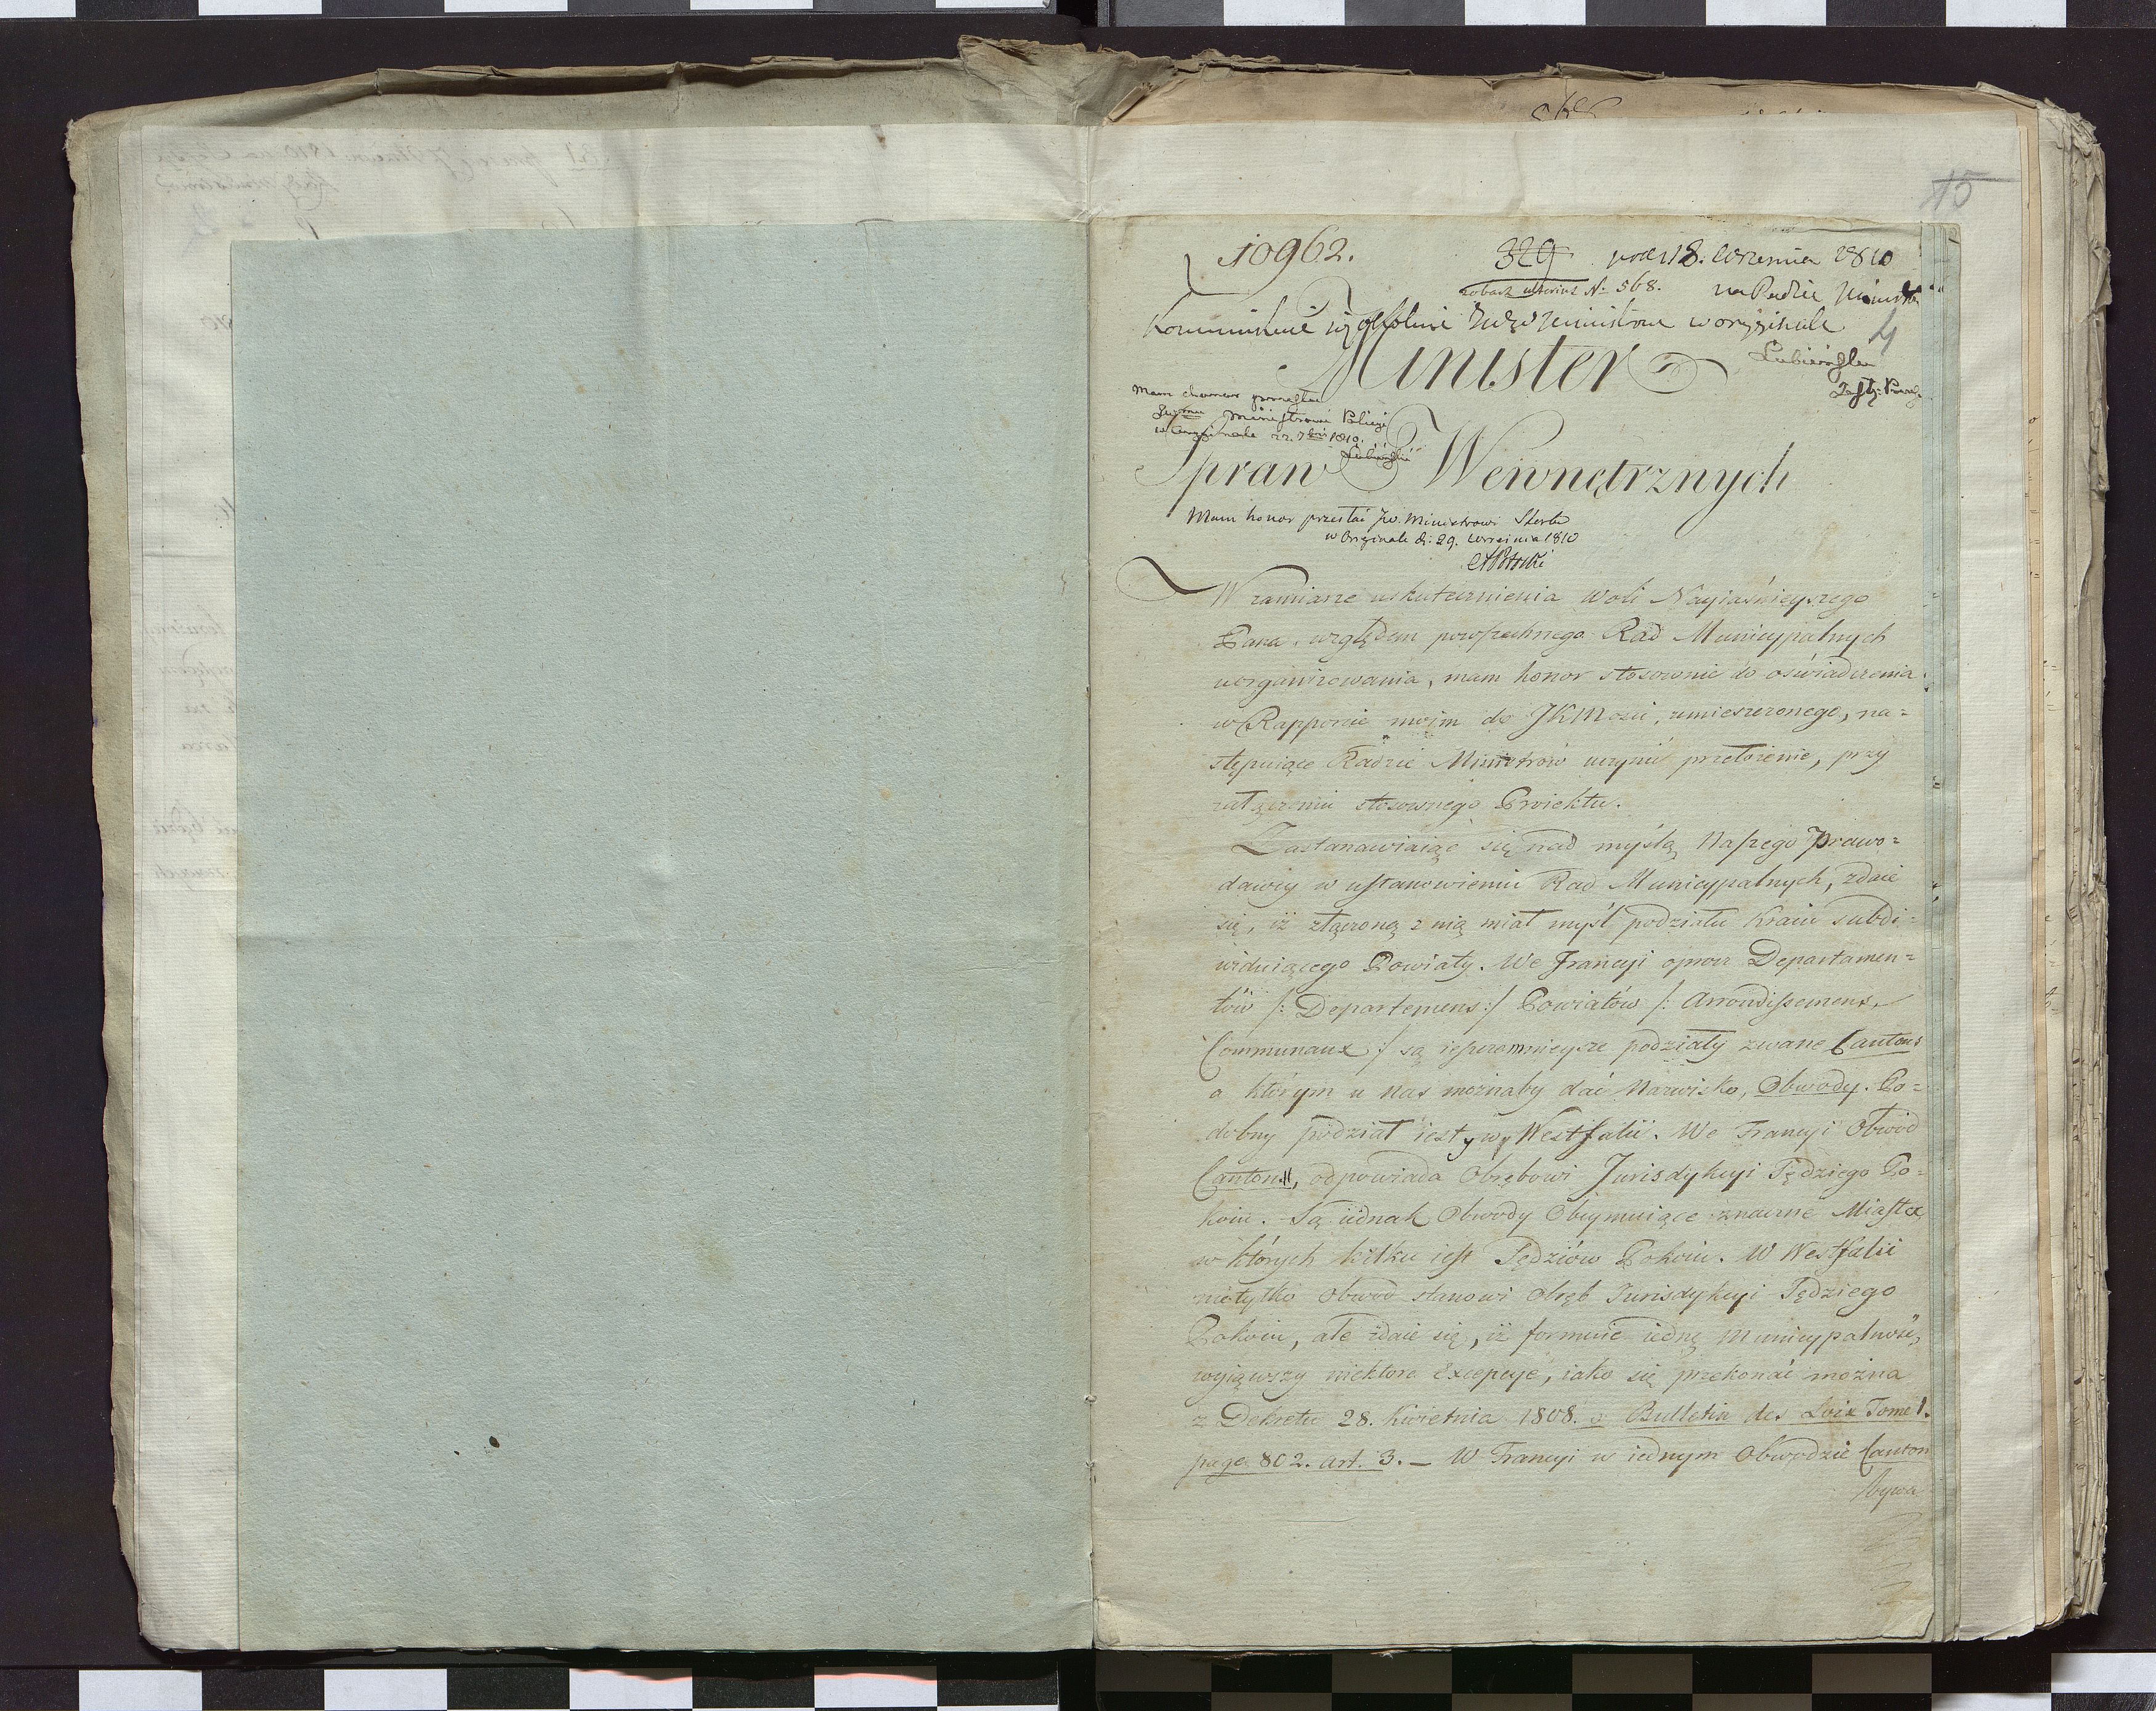 15
10962.
329 prod 18. Września 1810
zobacz ulterius N. 568. na Radzie Ministr
Kommunikuie się w oryginale
4
Minister
Lubieński
Mam honor przesłać
Ministrowi Policyi
w oryginale 22. 7bris 1810.
Lubieński
Spraw Wewnętrznych
Mam honor przesłać JW. Ministrowi Skarbu
w Orginale d: 29. Września 1810
APotocki
W zamiarze uskutecznienia Woli Nayiaśnieyszego
Pana, względem powszechnego Rad Municypalnych
uorganizowania, mam honor stosownie do oświadczenia
w Rapporcie moim do JKMości, umieszczonego, na=
stępuiące Radzie Ministrów uczynić przełożenie, przy
załączeniu stosownego Proiektu.
Zastanawiaiąc się nad myślą Naszego Prawo=
dawcy w ustanowieniu Rad Municypalnych, zdaie
się, iż złączoną z nią miał myśl podziału Kraiu subdi=
widuiącego Powiaty. We Francyi oprócz Departamen=
tów /: Departemens :/ Powiatów /: Arrondissemens,
Communaux :/ są ieszcze mnieysze podziały zwane Cantons
a którym u nas możnaby dać Nazwisko, Obwody. Po=
dobny podział iest w Westfalii. We Francyi Obwód
Canton, odpowiada Obrębowi Jurisdykcyi Sędziego Po=
koiu. Są iednak Obwody Obeymuiące znaczne Miasta
w których kilku iest Sędziów Pokoiu. W Westfalii
nietylko Obwód stanowi Obręb Jurisdykcyi Sędziego
Pokoiu, ale zdaie się, iż formuie iedną Municypalność,
wyiąwszy niektóre Excepcye, iako się przekonać można
z Dekretu 28. Kwietnia 1808. v. Bulletin des Loix Tome 1.
page 802. art. 3. — W Francyi w iednym Obwodzie Canton
bywa